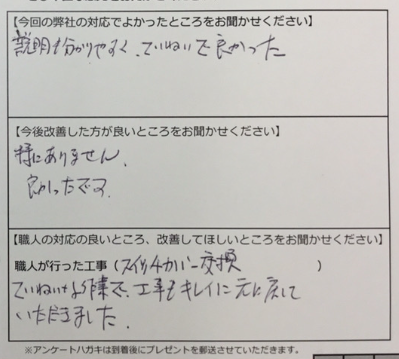 【今回の弊社の対応でよかったところをお聞かせください】
説明も分かりやすく、ていねいで良かった
【今後改善した方が良いところをお聞かせください】
特にありません、
良かったです。
【職人の対応の良いところ、改善してほしいところをお聞かせください】
職人が行った工事（スイッチカバー交換　）
ていねいな作業で、工事もキレイに元に戻して
いただきました。
※アンケートハガキは到着後にプレゼントを郵送させていただきます。